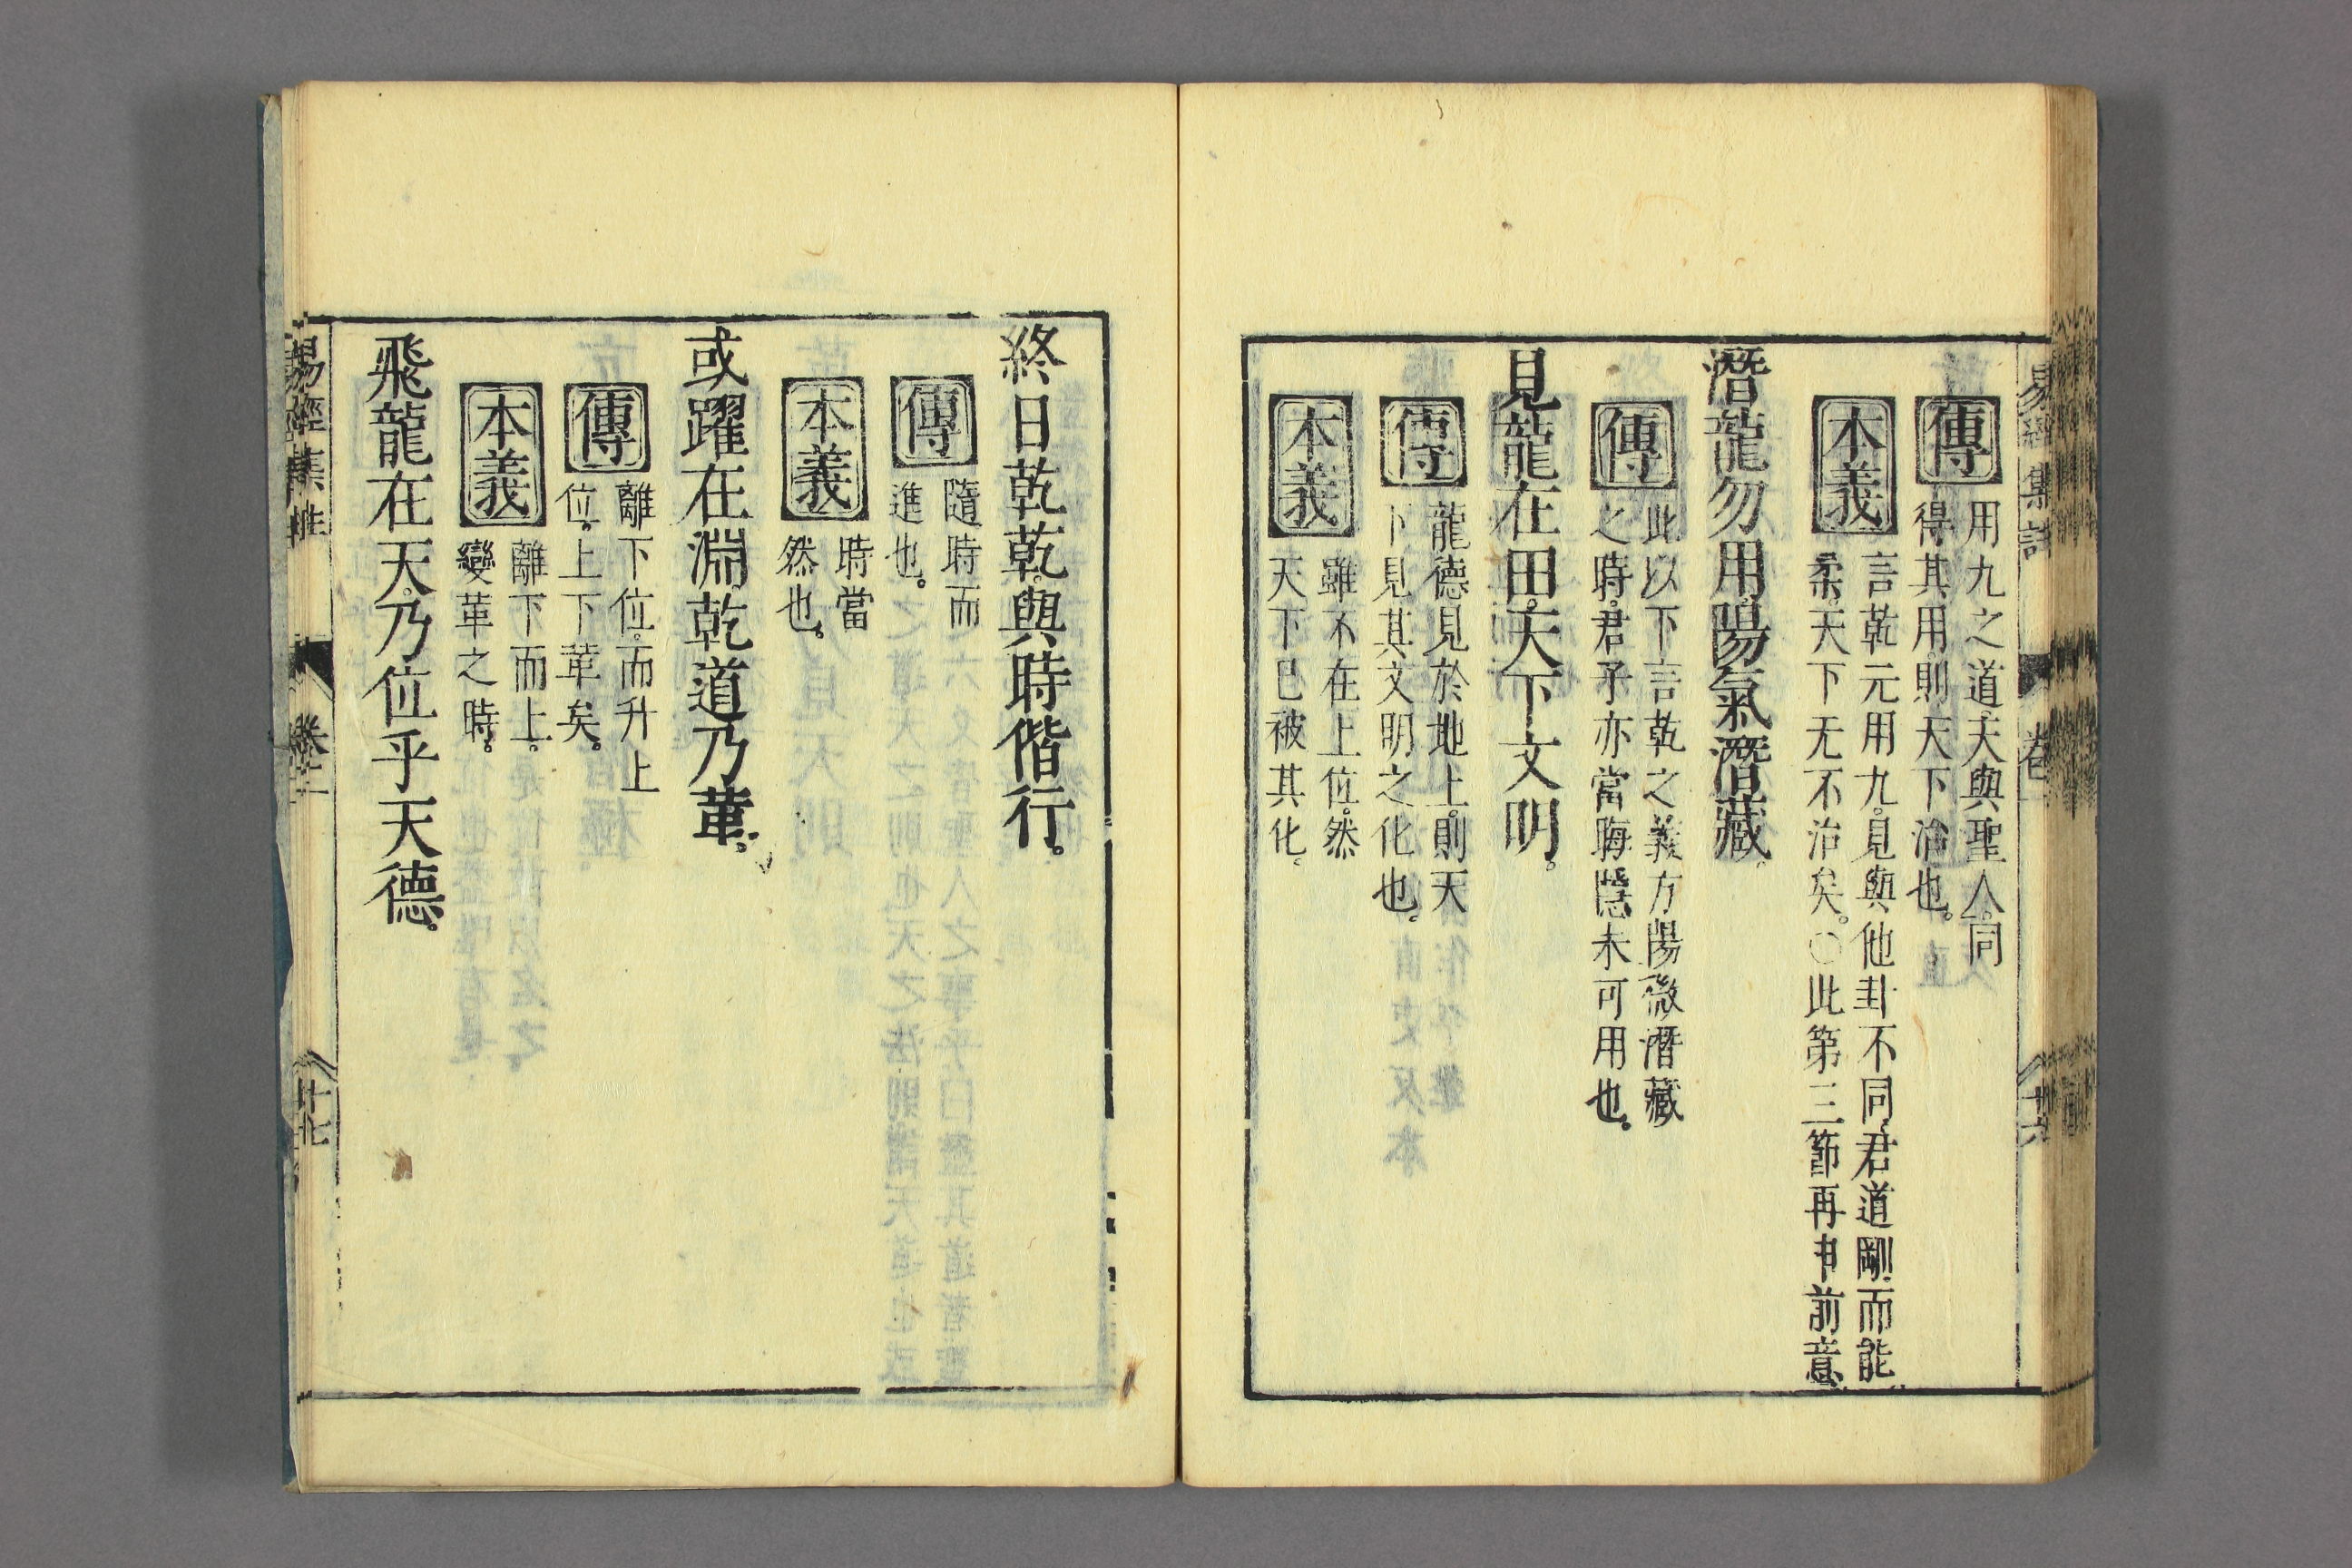 易經集註 卷一 廿六
傳 用九之道天與聖人同
得其用則天下治也。
本義 言乾元用九見與他卦不同君道剛而能
柔天下无不治矣。〇此第三節再申前意
潛龍勿用陽氣潛藏。
傳 此以下言乾之義方陽微潛藏
之時君子亦當晦隱未可用也。
見龍在田天下文明。
傳 龍德見於地上則天
下見其文明之化也。
本義 雖不在上位然
天下已被其化。
終日乾乾與時偕行。
傳 隨時而
進也。
本義 時當
然也。
或躍在淵乾道乃革。
傳 離下位而升上
位。上下革矣。
本義 離下而上。
變革之時。
飛龍在天乃位乎天德。
易經集註 卷一 廿七